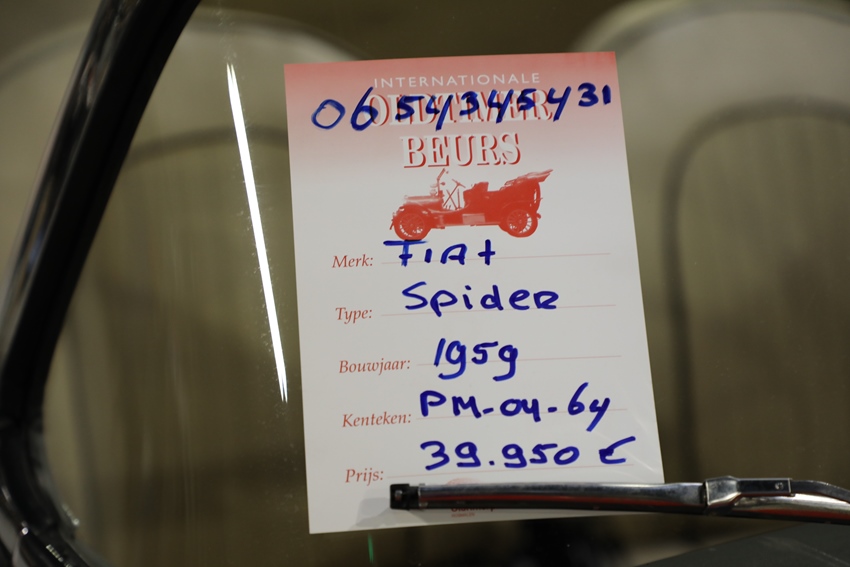 INTERNATIONALE
OLDTIMER
06 54345431
BEURS
Merk: Fiat
Type: Spider
Bouwjaar: 1959
Kenteken: PM-04-64
Prijs: 39.950 €